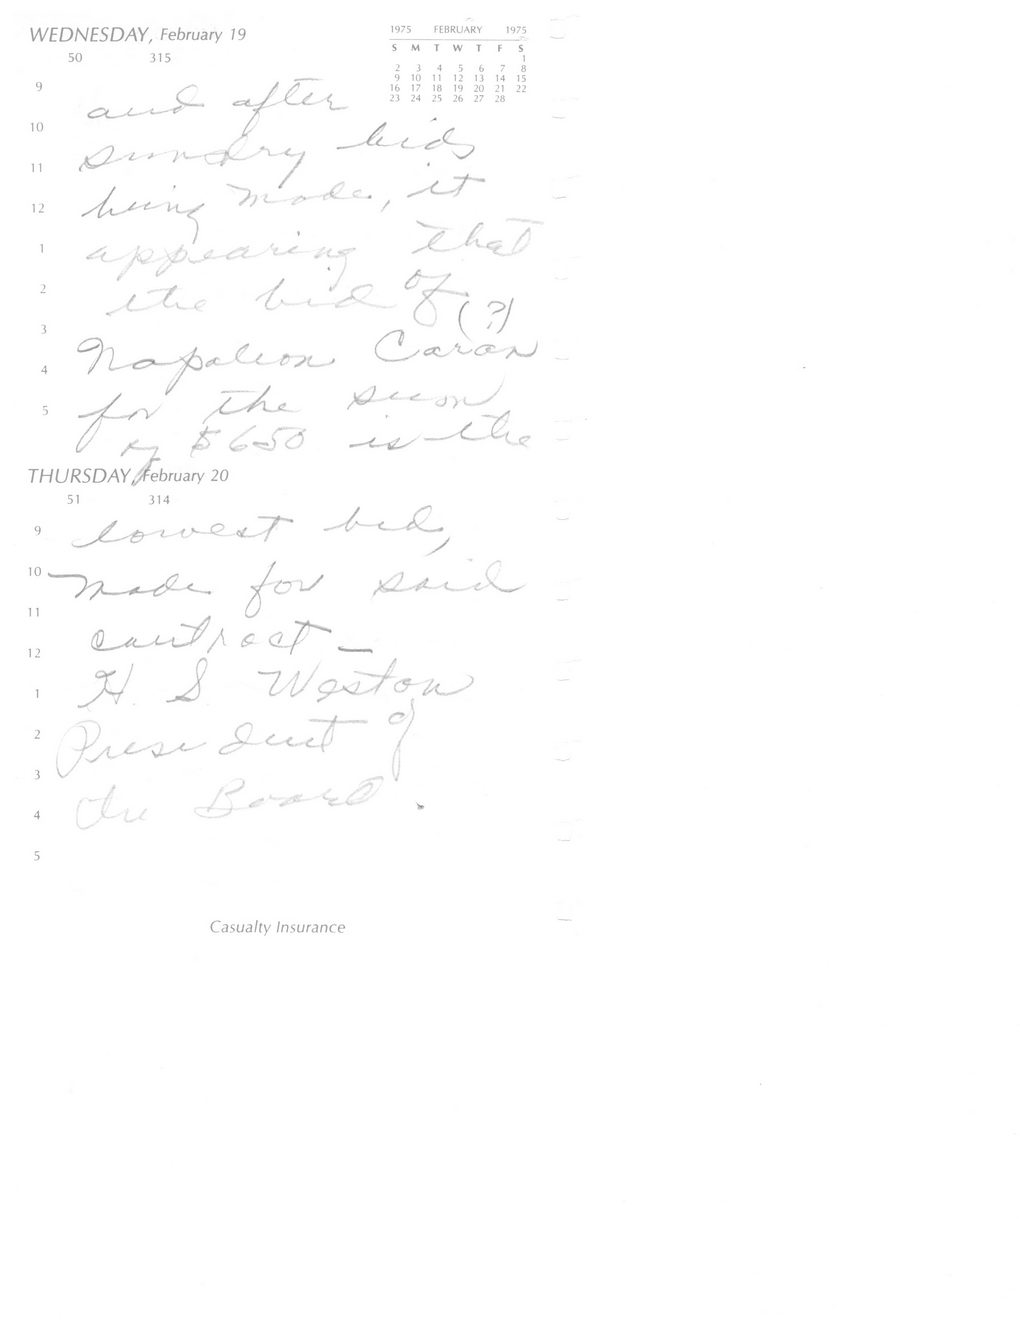 WEDNESDAY, February 19
50 315
1975 FEBRUARY 1975
S M T W T F S
1
2 3 4 5 6 7 8
9 10 11 12 13 14 15
16 17 18 19 20 21 22
23 24 25 26 27 28
9
and after
10
sundry bids
11
12
being made, it
1
appearing that
2
the bid of (?)
3
Napoleon Caron
4
for the sum
5
of $650 is the
THURSDAY, February 20
51 314
9
lowest bid,
10
made for said
11
contract —
12
1
H. S. Weston
2
President of
3
the Board.
4
5
Casualty Insurance